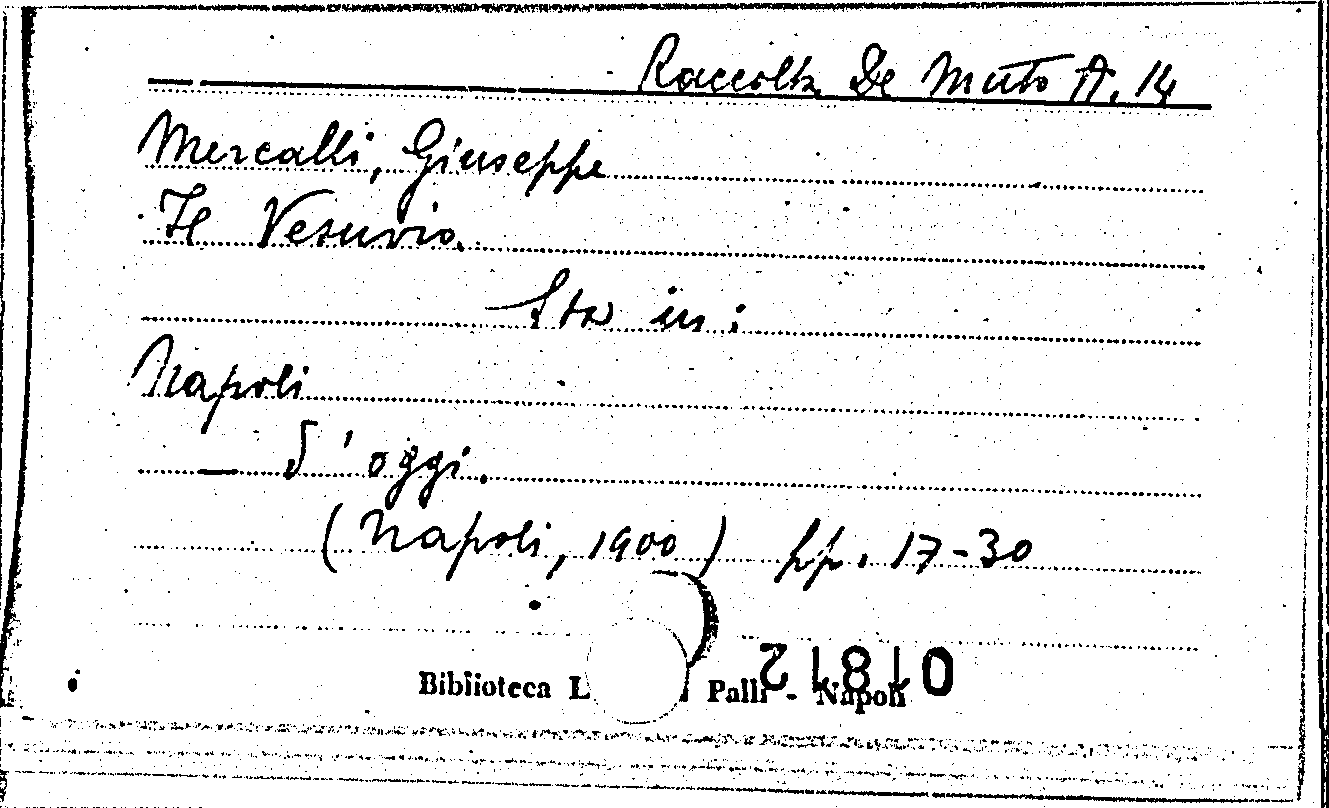 Raccolta De Muto A. 14
Mercalli, Giuseppe
Il Vesuvio.
Sta in:
Napoli
— d'oggi.
(Napoli, 1900) pp. 17-30
Biblioteca L Palli - Napoli
21810